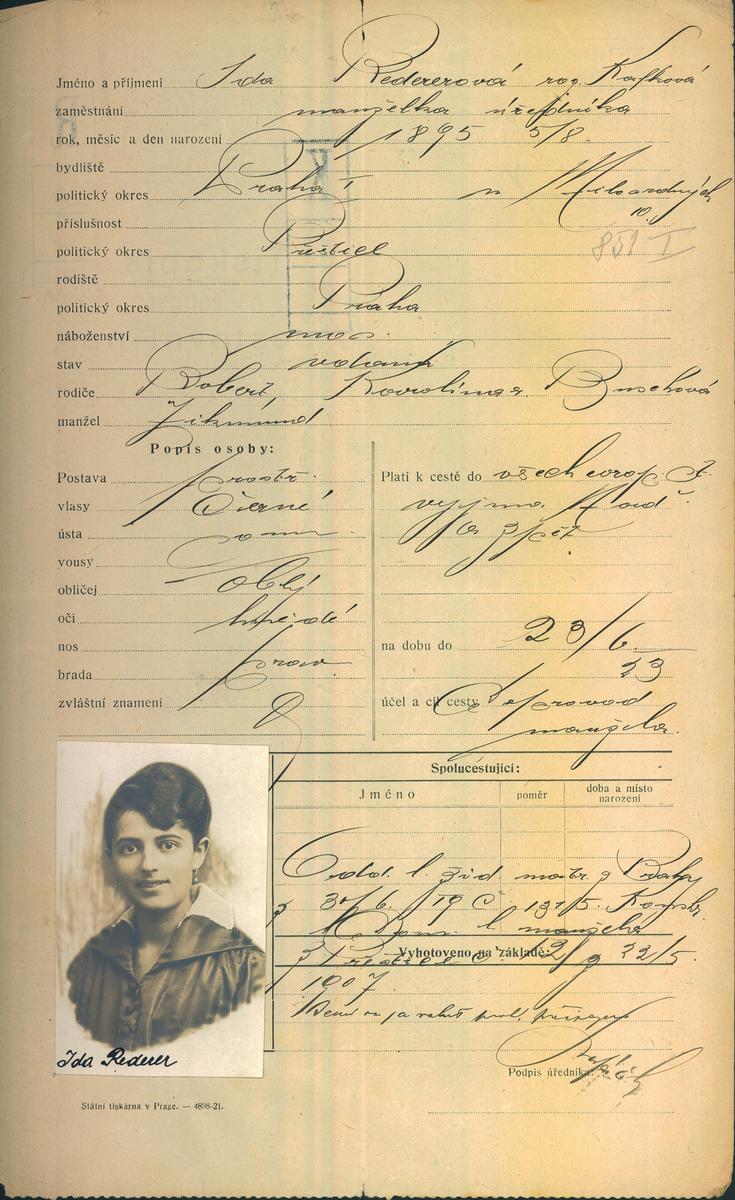 Jméno a příjmení Ida Redererová roz. Kafková
zaměstnání manželka úředníka
rok, měsíc a den narození 1895 5/8.
bydliště
politický okres Praha I n Milosrdných
10.
příslušnost
851 I
politický okres Přeštice
rodiště
politický okres Praha
náboženství mos.
stav vdaná
rodiče Robert, Karolina r. Buschová
manžel Zikmund
Popis osoby:
Postava prostř.
vlasy černé
ústa
vousy
obličej oblý
oči hnědé
nos
brada prav
zvláštní znamení
Platí k cestě do všech evrop. st.
a zpět
na dobu do 23/6
23
účel a cíl cesty Doprovod
manžela.
Spolucestující:
Jméno poměr doba a místo narození
Odd. l. žid. matr. z Prahy
z 30/6. 19 č 131/5.
Dom. l. manžela
Vyhotoveno na základě:
z Přeštice č. 2/z 22/5.
1907
Podpis úředníka:
Ida Rederer
Státní tiskárna v Praze. — 4898-21.